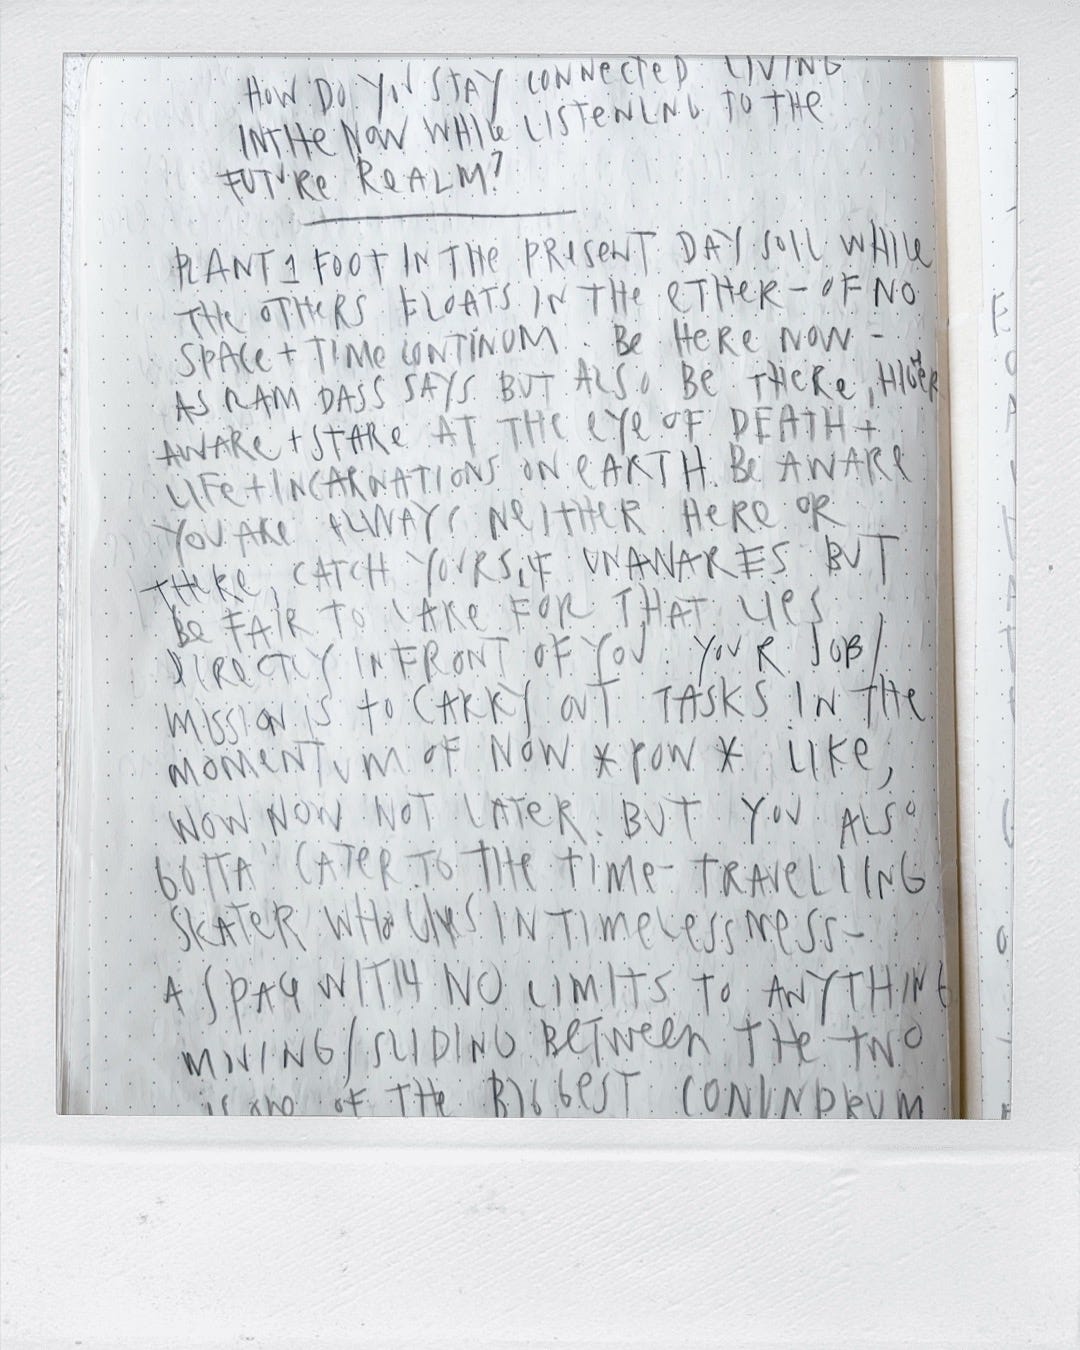 HOW DO YOU STAY CONNECTED LIVING
IN THE NOW WHILE LISTENING TO THE
FUTURE REALM?
PLANT 1 FOOT IN THE PRESENT DAY SOIL WHILE
THE OTHERS FLOATS IN THE ETHER - OF NO
SPACE + TIME CONTINUM. BE HERE NOW -
AS RAM DASS SAYS BUT ALSO BE THERE,
AWARE + STARE AT THE EYE OF DEATH +
LIFE + INCARNATIONS ON EARTH. BE AWARE
YOU ARE ALWAYS NEITHER HERE OR
THERE, CATCH YOURSELF UNAWARES BUT
BE FAIR TO CARE FOR THAT LIES
DIRECTLY IN FRONT OF YOU. YOUR JOB/
MISSION IS TO CARRY OUT TASKS IN THE
MOMENTUM OF NOW * * LIKE,
WOW NOW NOT LATER. BUT YOU ALSO
GOTTA CATER TO THE TIME-TRAVELLING
SKATER WHO LIVES IN TIMELESSNESS-
A SPACE WITH NO LIMITS TO ANYTHING
/SLIDING BETWEEN THE TWO
IS ONE OF THE BIGGEST CONUNDRUM